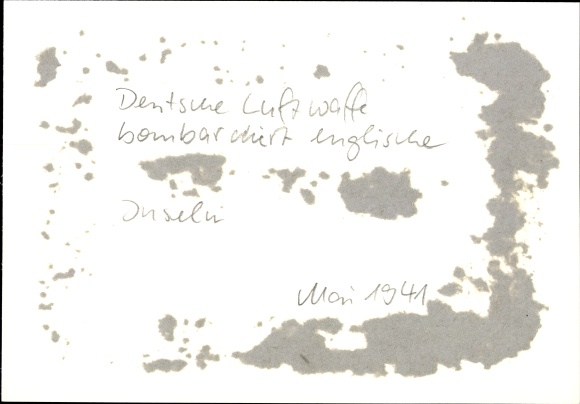 Deutsche Luftwaffe
bombardiert englische
Inseln
Mai 1941